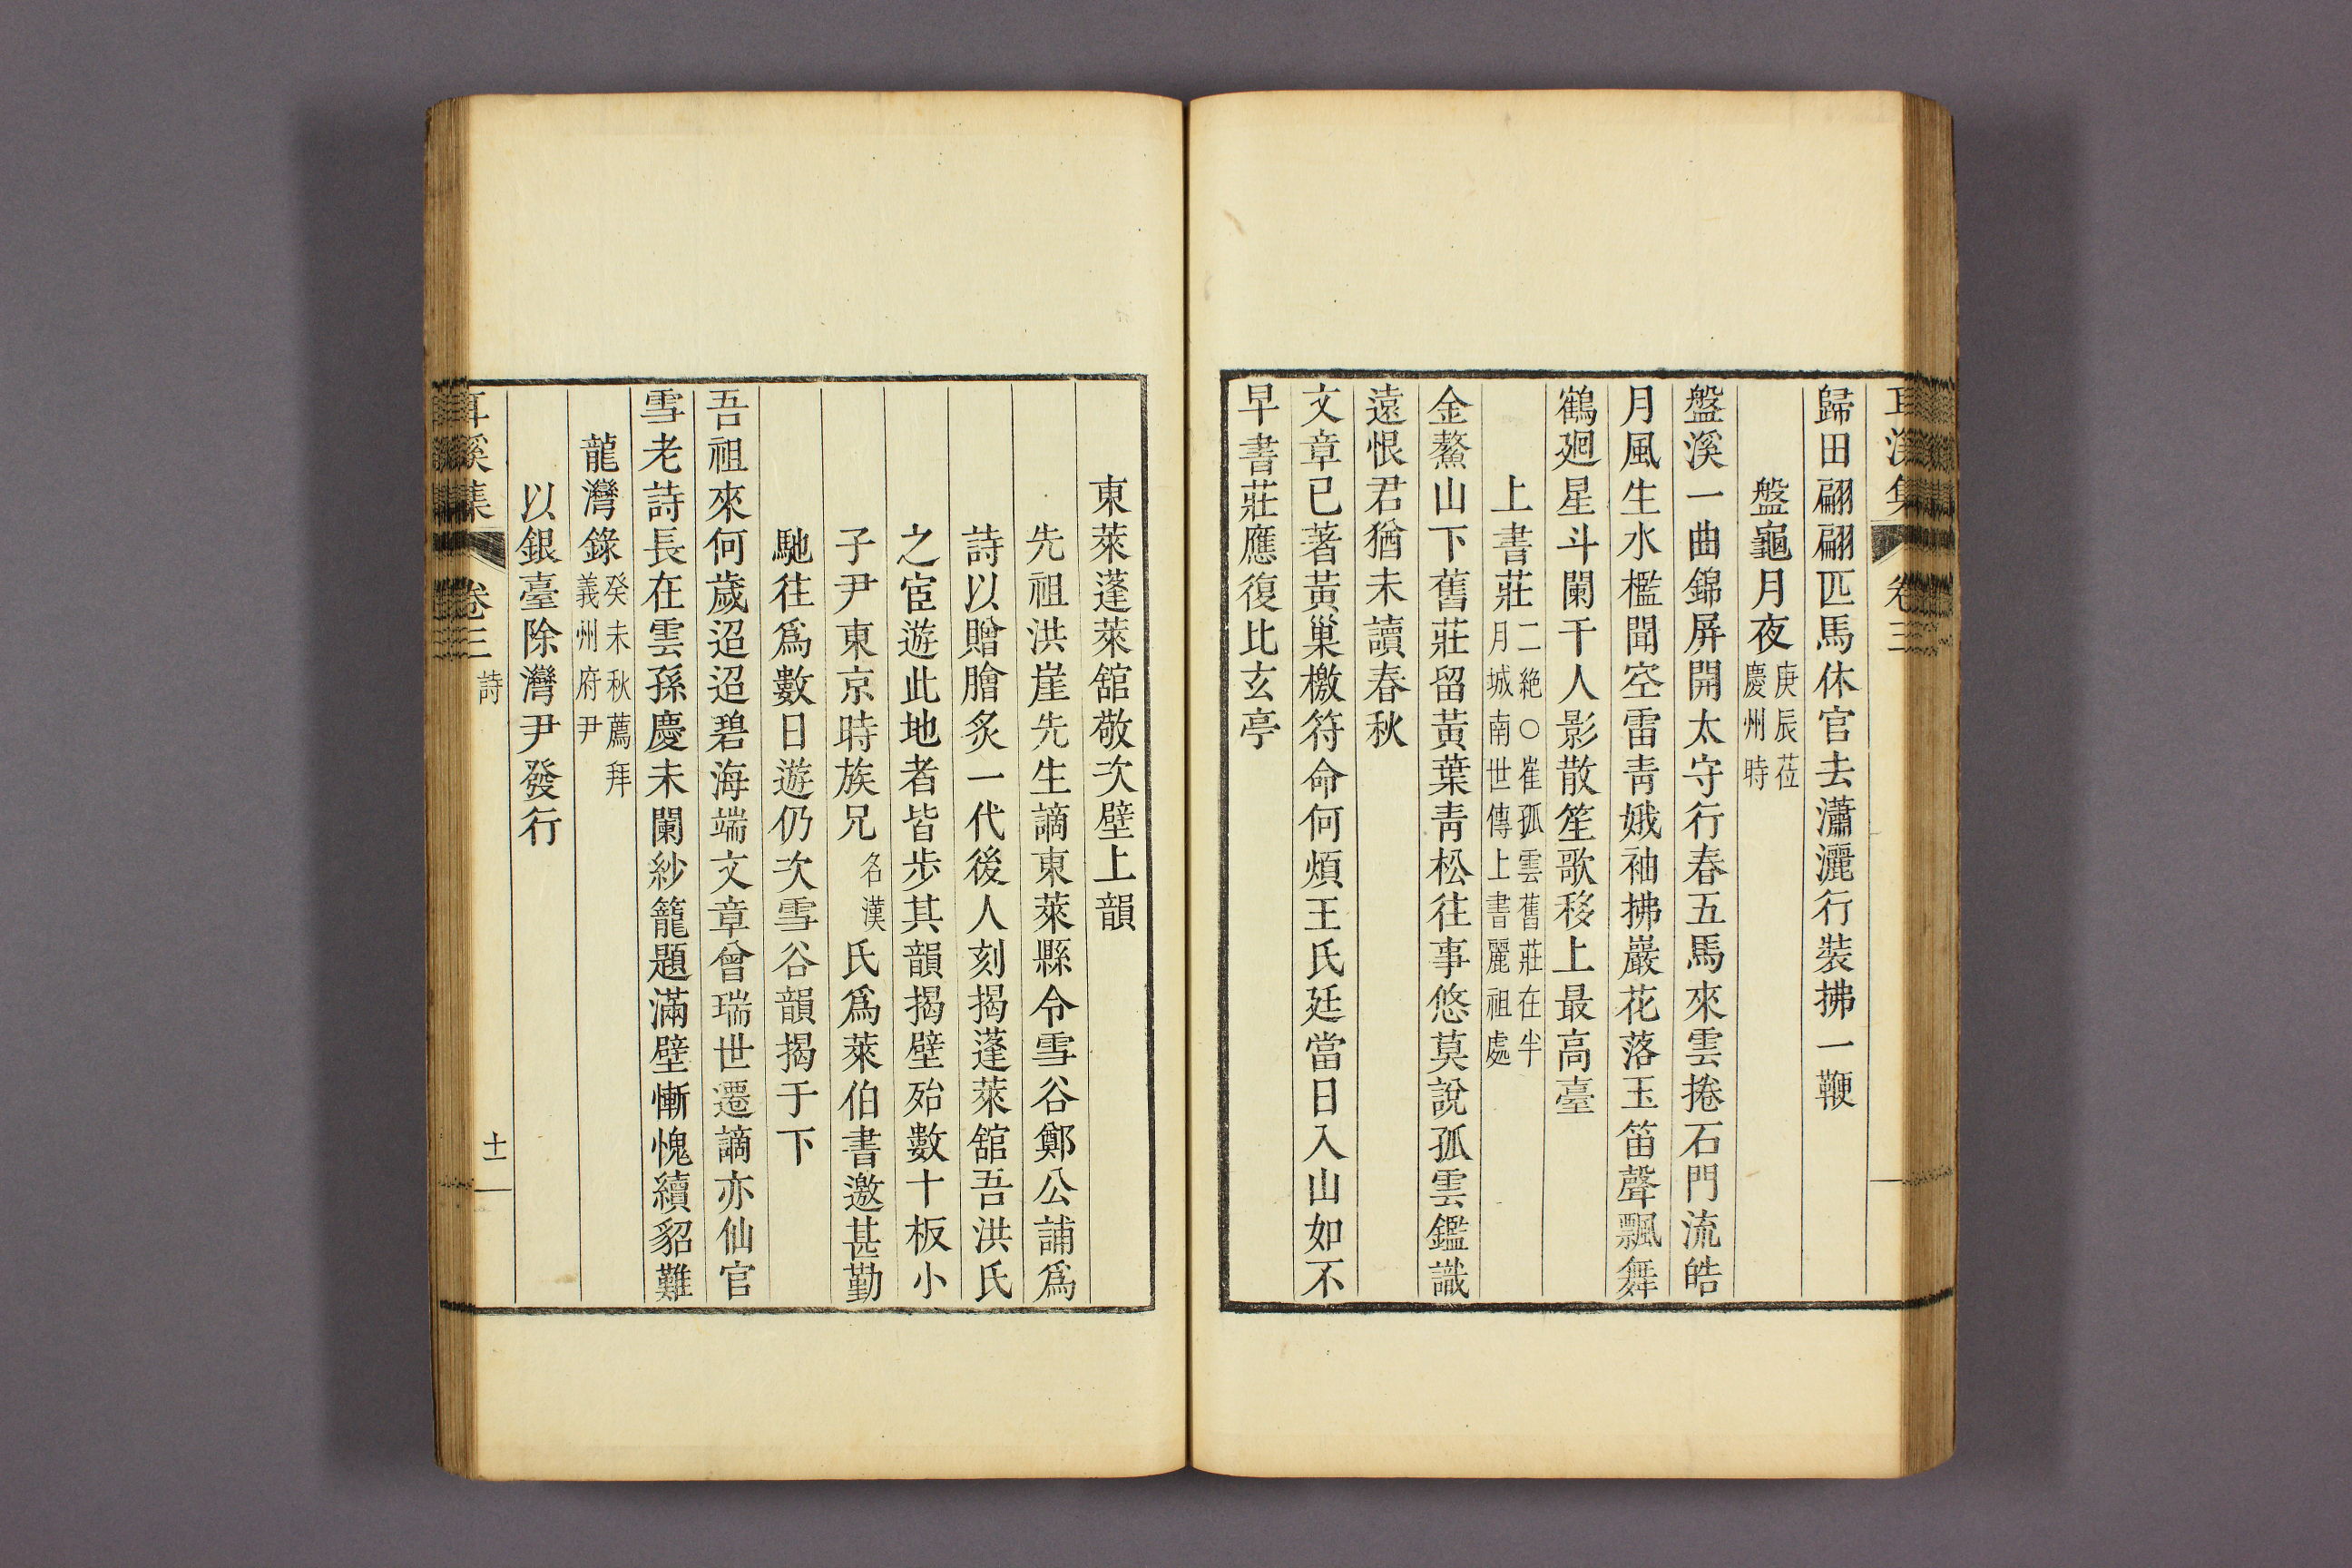 耳溪集 卷三
歸田翩翩匹馬休官去瀟灑行裝拂一鞭
盤龜月夜 庚辰莅慶州時
盤溪一曲錦屏開太守行春五馬來雲捲石門流皓
月風生水檻聞空雷靑娥袖拂巖花落玉笛聲飄舞
鶴廻星斗闌干人影散笙歌移上最高臺
上書莊 二絶○崔孤雲舊莊在半月城南世傳上書麗祖處
金鰲山下舊莊留黃葉靑松往事悠莫說孤雲鑑識
遠恨君猶未讀春秋
文章已著黃巢檄符命何煩王氏廷當日入山如不
早書莊應復比玄亭
東萊蓬萊舘敬次壁上韻
先祖洪崖先生謫東萊縣令雪谷鄭公誧爲
詩以贈膾炙一代後人刻揭蓬萊舘吾洪氏
之宦遊此地者皆步其韻揭壁殆數十板小
子尹東京時族兄 名漢 氏爲萊伯書邀甚勤
馳往爲數日遊仍次雪谷韻揭于下
吾祖來何歲迢迢碧海端文章曾瑞世遷謫亦仙官
雪老詩長在雲孫慶未闌紗籠題滿壁慚愧續貂難
龍灣錄 癸未秋薦拜義州府尹
以銀臺除灣尹發行
耳溪集 卷三 詩 十一